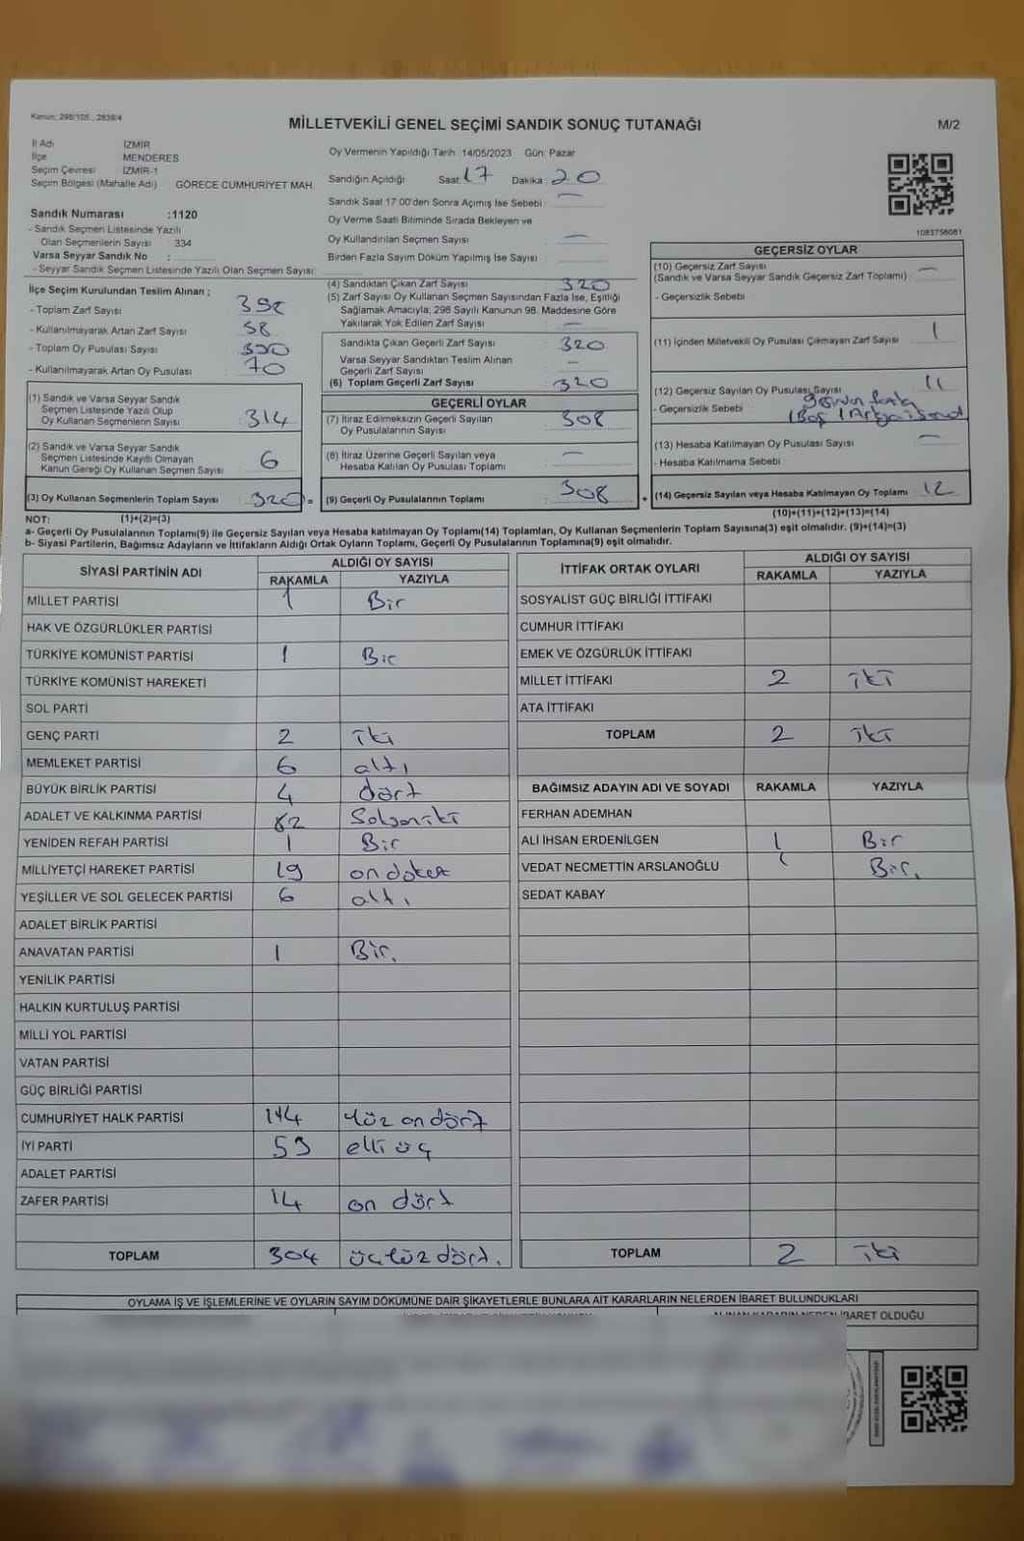 Kanun: 298/105., 2839/4
MİLLETVEKİLİ GENEL SEÇİMİ SANDIK SONUÇ TUTANAĞI
M/2
İl Adı İZMİR
İlçe MENDERES
Seçim Çevresi İZMİR-1
Seçim Bölgesi (Mahalle Adı) GÖRECE CUMHURİYET MAH.
Oy Vermenin Yapıldığı Tarih :14/05/2023 Gün: Pazar
Sandığın Açıldığı Saat: 17 Dakika: 20
Sandık Saat 17.00'den Sonra Açılmış İse Sebebi : —
Oy Verme Saati Bitiminde Sırada Bekleyen ve
Oy Kullandırılan Seçmen Sayısı : —
Birden Fazla Sayım Döküm Yapılmış İse Sayısı : —
1083758081
Sandık Numarası :1120
- Sandık Seçmen Listesinde Yazılı
Olan Seçmenlerin Sayısı 334
Varsa Seyyar Sandık No :
- Seyyar Sandık Seçmen Listesinde Yazılı Olan Seçmen Sayısı:
İlçe Seçim Kurulundan Teslim Alınan ;
- Toplam Zarf Sayısı
- Kullanılmayarak Artan Zarf Sayısı 58
- Toplam Oy Pusulası Sayısı
- Kullanılmayarak Artan Oy Pusulası 70
(1) Sandık ve Varsa Seyyar Sandık
Seçmen Listesinde Yazılı Olup
Oy Kullanan Seçmenlerin Sayısı 314
(2) Sandık ve Varsa Seyyar Sandık
Seçmen Listesinde Kayıtlı Olmayan
Kanun Gereği Oy Kullanan Seçmen Sayısı 6
(3) Oy Kullanan Seçmenlerin Toplam Sayısı 320 =
(4) Sandıktan Çıkan Zarf Sayısı 320
(5) Zarf Sayısı Oy Kullanan Seçmen Sayısından Fazla İse, Eşitliği
Sağlamak Amacıyla; 298 Sayılı Kanunun 98. Maddesine Göre
Yakılarak Yok Edilen Zarf Sayısı : —
Sandıkta Çıkan Geçerli Zarf Sayısı 320
Varsa Seyyar Sandıktan Teslim Alınan
Geçerli Zarf Sayısı : —
(6) Toplam Geçerli Zarf Sayısı 320
GEÇERLİ OYLAR
(7) İtiraz Edilmeksizin Geçerli Sayılan
Oy Pusulalarının Sayısı 308
(8) İtiraz Üzerine Geçerli Sayılan veya
Hesaba Katılan Oy Pusulası Toplamı : —
(9) Geçerli Oy Pusulalarının Toplamı : 308 +
GEÇERSİZ OYLAR
(10) Geçersiz Zarf Sayısı
(Sandık ve Varsa Seyyar Sandık Geçersiz Zarf Toplamı) : —
- Geçersizlik Sebebi
(11) İçinden Milletvekili Oy Pusulası Çıkmayan Zarf Sayısı 1
(12) Geçersiz Sayılan Oy Pusulası Sayısı 11
- Geçersizlik Sebebi fazla
1 Boş
(13) Hesaba Katılmayan Oy Pusulası Sayısı : —
- Hesaba Katılmama Sebebi
(14) Geçersiz Sayılan veya Hesaba Katılmayan Oy Toplamı 12
NOT: (1)+(2)=(3) (10)+(11)+(12)+(13)=(14)
a- Geçerli Oy Pusulalarının Toplamı(9) ile Geçersiz Sayılan veya Hesaba katılmayan Oy Toplamı(14) Toplamları, Oy Kullanan Seçmenlerin Toplam Sayısına(3) eşit olmalıdır. (9)+(14)=(3)
b- Siyasi Partilerin, Bağımsız Adayların ve İttifakların Aldığı Ortak Oyların Toplamı, Geçerli Oy Pusulalarının Toplamına(9) eşit olmalıdır.
SİYASİ PARTİNİN ADI ALDIĞI OY SAYISI
RAKAMLA YAZIYLA
MİLLET PARTİSİ 1 Bir
HAK VE ÖZGÜRLÜKLER PARTİSİ
TÜRKİYE KOMÜNİST PARTİSİ 1 Bir
TÜRKİYE KOMÜNİST HAREKETİ
SOL PARTİ
GENÇ PARTİ 2 iki
MEMLEKET PARTİSİ 6 altı
BÜYÜK BİRLİK PARTİSİ 4 dört
ADALET VE KALKINMA PARTİSİ 82 Seksen iki
YENİDEN REFAH PARTİSİ 1 Bir
MİLLİYETÇİ HAREKET PARTİSİ 19 on dokuz
YEŞİLLER VE SOL GELECEK PARTİSİ 6 altı
ADALET BİRLİK PARTİSİ
ANAVATAN PARTİSİ 1 Bir.
YENİLİK PARTİSİ
HALKIN KURTULUŞ PARTİSİ
MİLLİ YOL PARTİSİ
VATAN PARTİSİ
GÜÇ BİRLİĞİ PARTİSİ
CUMHURİYET HALK PARTİSİ 114 Yüz on dört
İYİ PARTİ 53 elli üç
ADALET PARTİSİ
ZAFER PARTİSİ 14 on dört
TOPLAM 304 üçyüz dört.
İTTİFAK ORTAK OYLARI ALDIĞI OY SAYISI
RAKAMLA YAZIYLA
SOSYALİST GÜÇ BİRLİĞİ İTTİFAKI
CUMHUR İTTİFAKI
EMEK VE ÖZGÜRLÜK İTTİFAKI
MİLLET İTTİFAKI 2 iki
ATA İTTİFAKI
TOPLAM 2 iki
BAĞIMSIZ ADAYIN ADI VE SOYADI RAKAMLA YAZIYLA
FERHAN ADEMHAN
ALİ İHSAN ERDENİLGEN 1 Bir
VEDAT NECMETTİN ARSLANOĞLU 1 Bir.
SEDAT KABAY
TOPLAM 2 iki
OYLAMA İŞ VE İŞLEMLERİNE VE OYLARIN SAYIM DÖKÜMÜNE DAİR ŞİKAYETLERLE BUNLARA AİT KARARLARIN NELERDEN İBARET BULUNDUKLARI
ALINAN KARARIN NEDEN İBARET OLDUĞU